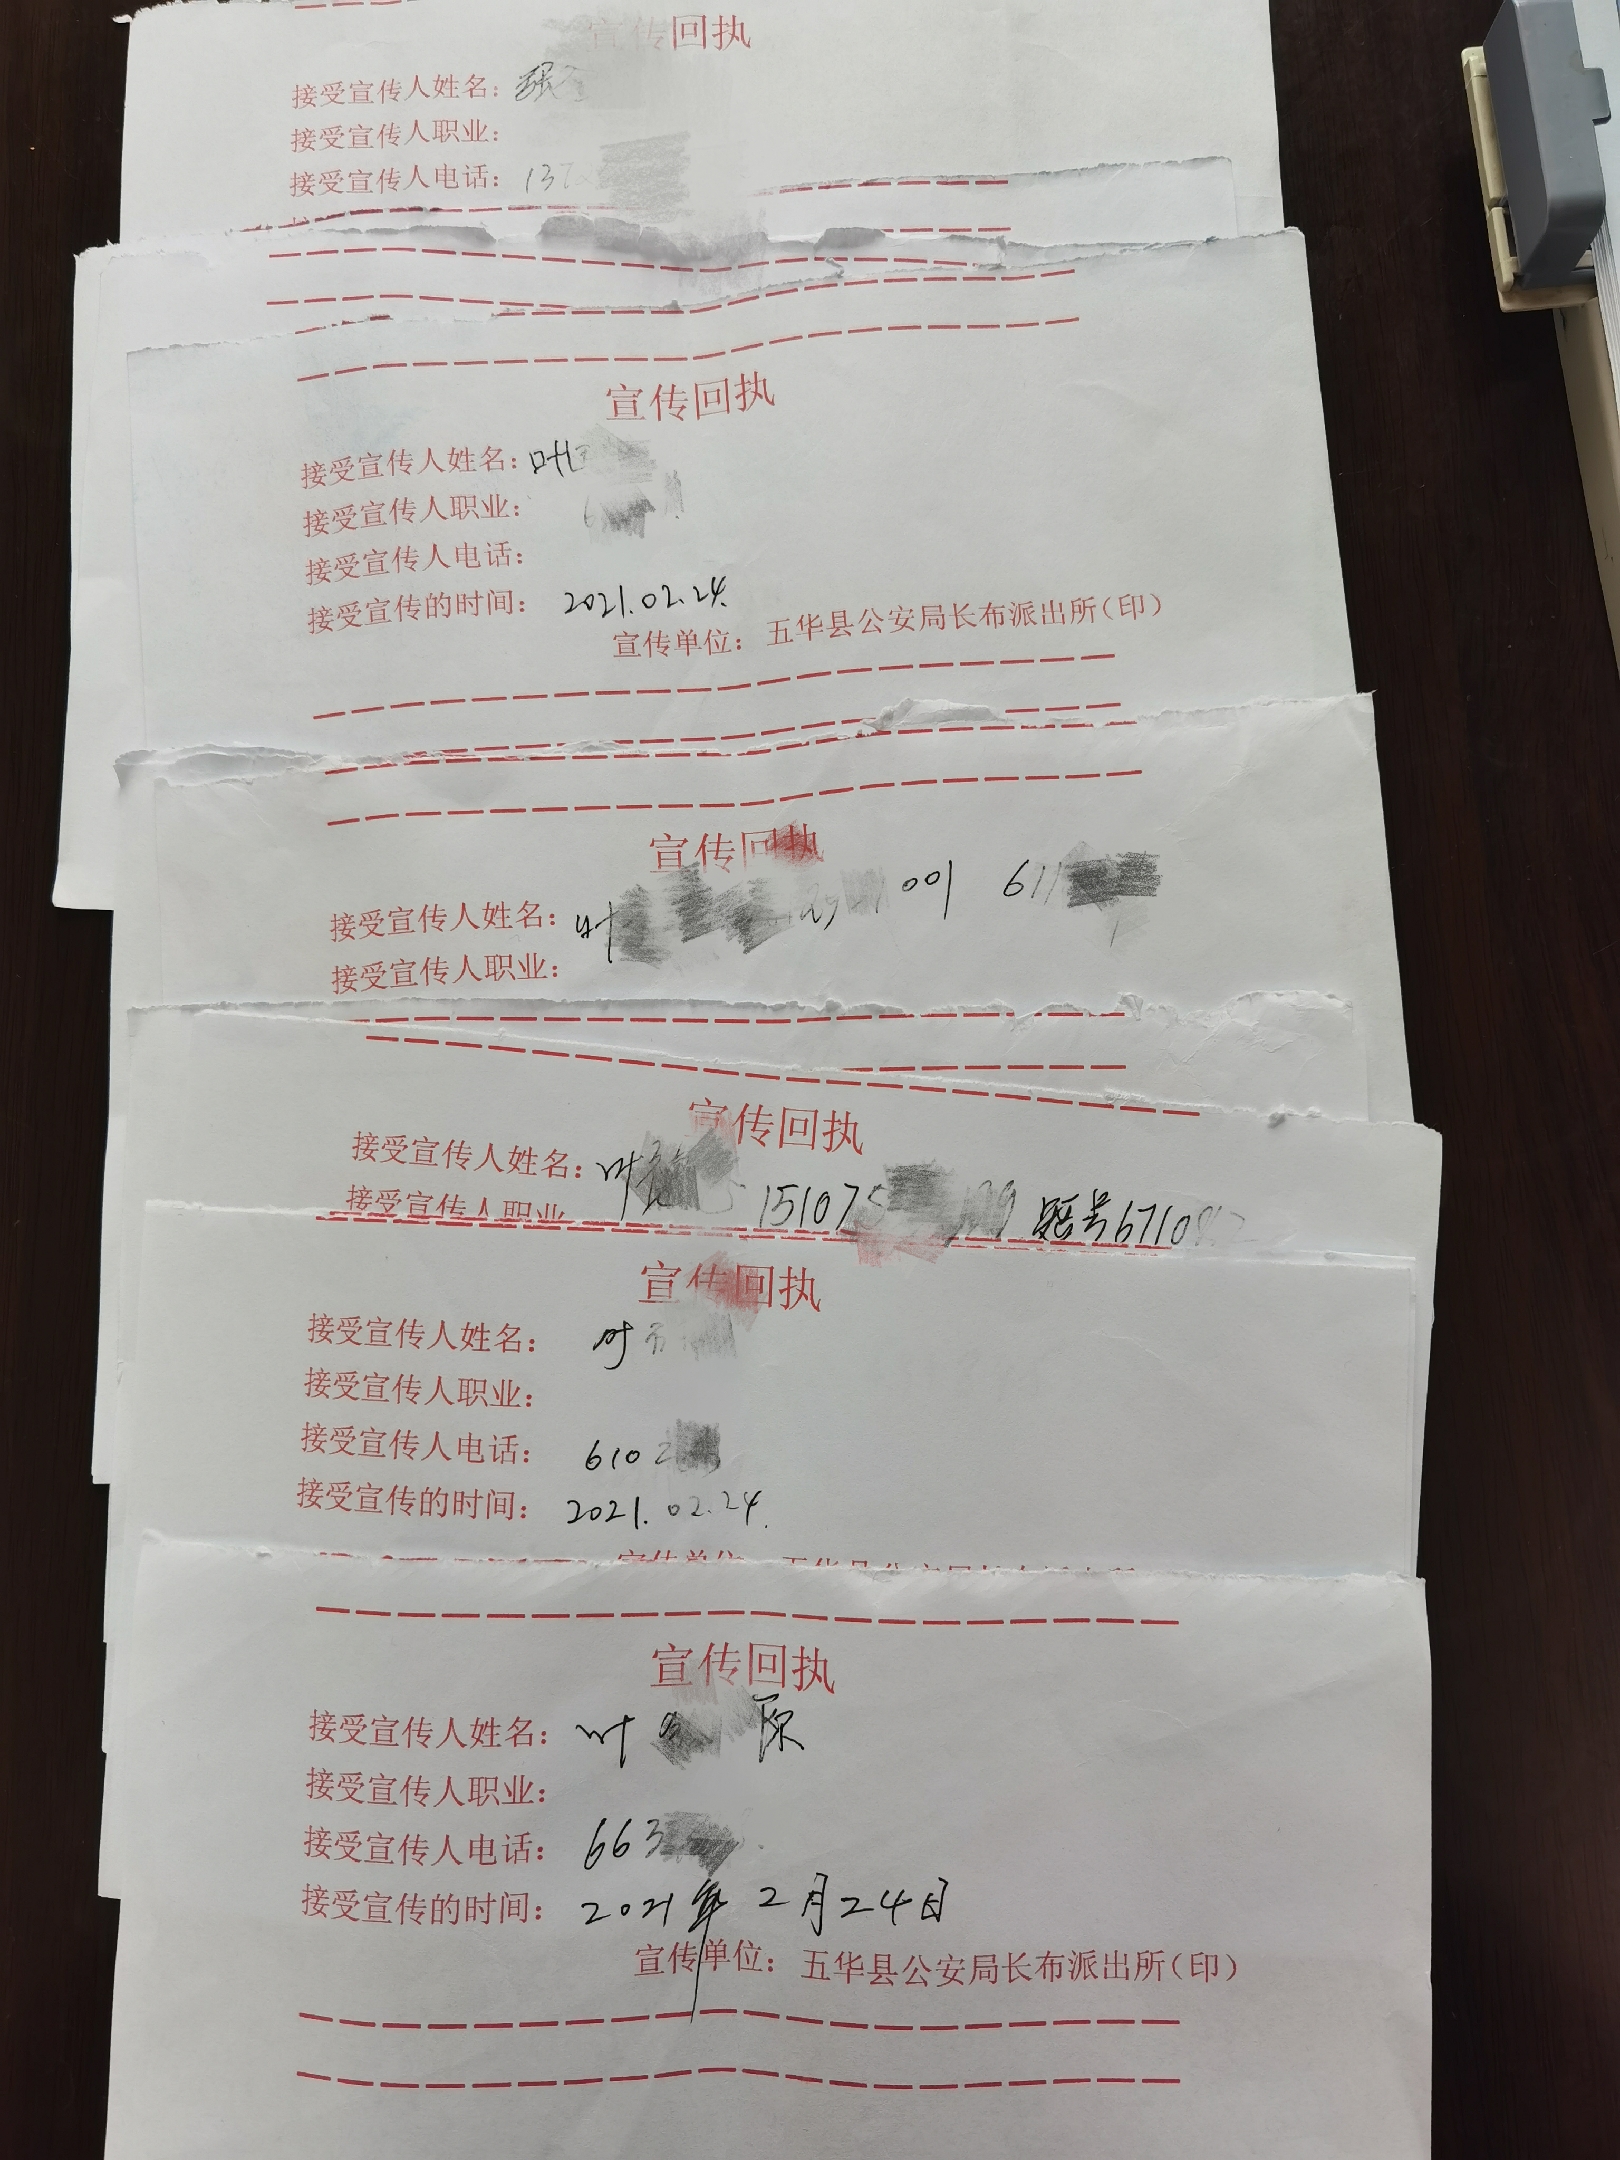 宣传回执
接受宣传人姓名：
接受宣传人职业：
接受宣传人电话：137
宣传回执
接受宣传人姓名：叶
接受宣传人职业：6
接受宣传人电话：
接受宣传的时间：2021.02.24.
宣传单位：五华县公安局长布派出所（印）
宣传回执
接受宣传人姓名：叶 001 611
接受宣传人职业：
宣传回执
接受宣传人姓名：叶 15107 短号6710
接受宣传人职业
宣传回执
接受宣传人姓名：叶
接受宣传人职业：
接受宣传人电话：610
接受宣传的时间：2021.02.24.
宣传回执
接受宣传人姓名：叶
接受宣传人职业：
接受宣传人电话：663
接受宣传的时间：2021年2月24日
宣传单位：五华县公安局长布派出所（印）